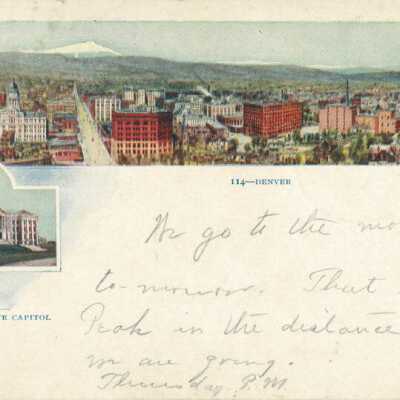 114—DENVER
We go to the mo
to-morrow. That
E CAPITOL
Peak in the distance
we are going.
Thursday P.M